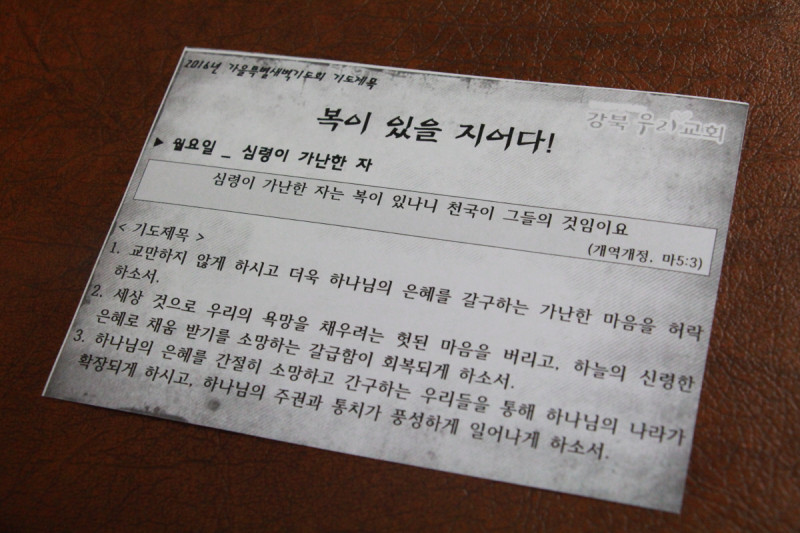 2016년 가을특별새벽기도회 기도제목
강북 우리교회
복이 있을 지어다!
▶ 월요일 _ 심령이 가난한 자
심령이 가난한 자는 복이 있나니 천국이 그들의 것임이요
(개역개정. 마5:3)
< 기도제목 >
1. 교만하지 않게 하시고 더욱 하나님의 은혜를 갈구하는 가난한 마음을 허락
하소서.
2. 세상 것으로 우리의 욕망을 채우려는 헛된 마음을 버리고, 하늘의 신령한
은혜로 채움 받기를 소망하는 갈급함이 회복되게 하소서.
3. 하나님의 은혜를 간절히 소망하고 간구하는 우리들을 통해 하나님의 나라가
확장되게 하시고, 하나님의 주권과 통치가 풍성하게 일어나게 하소서.